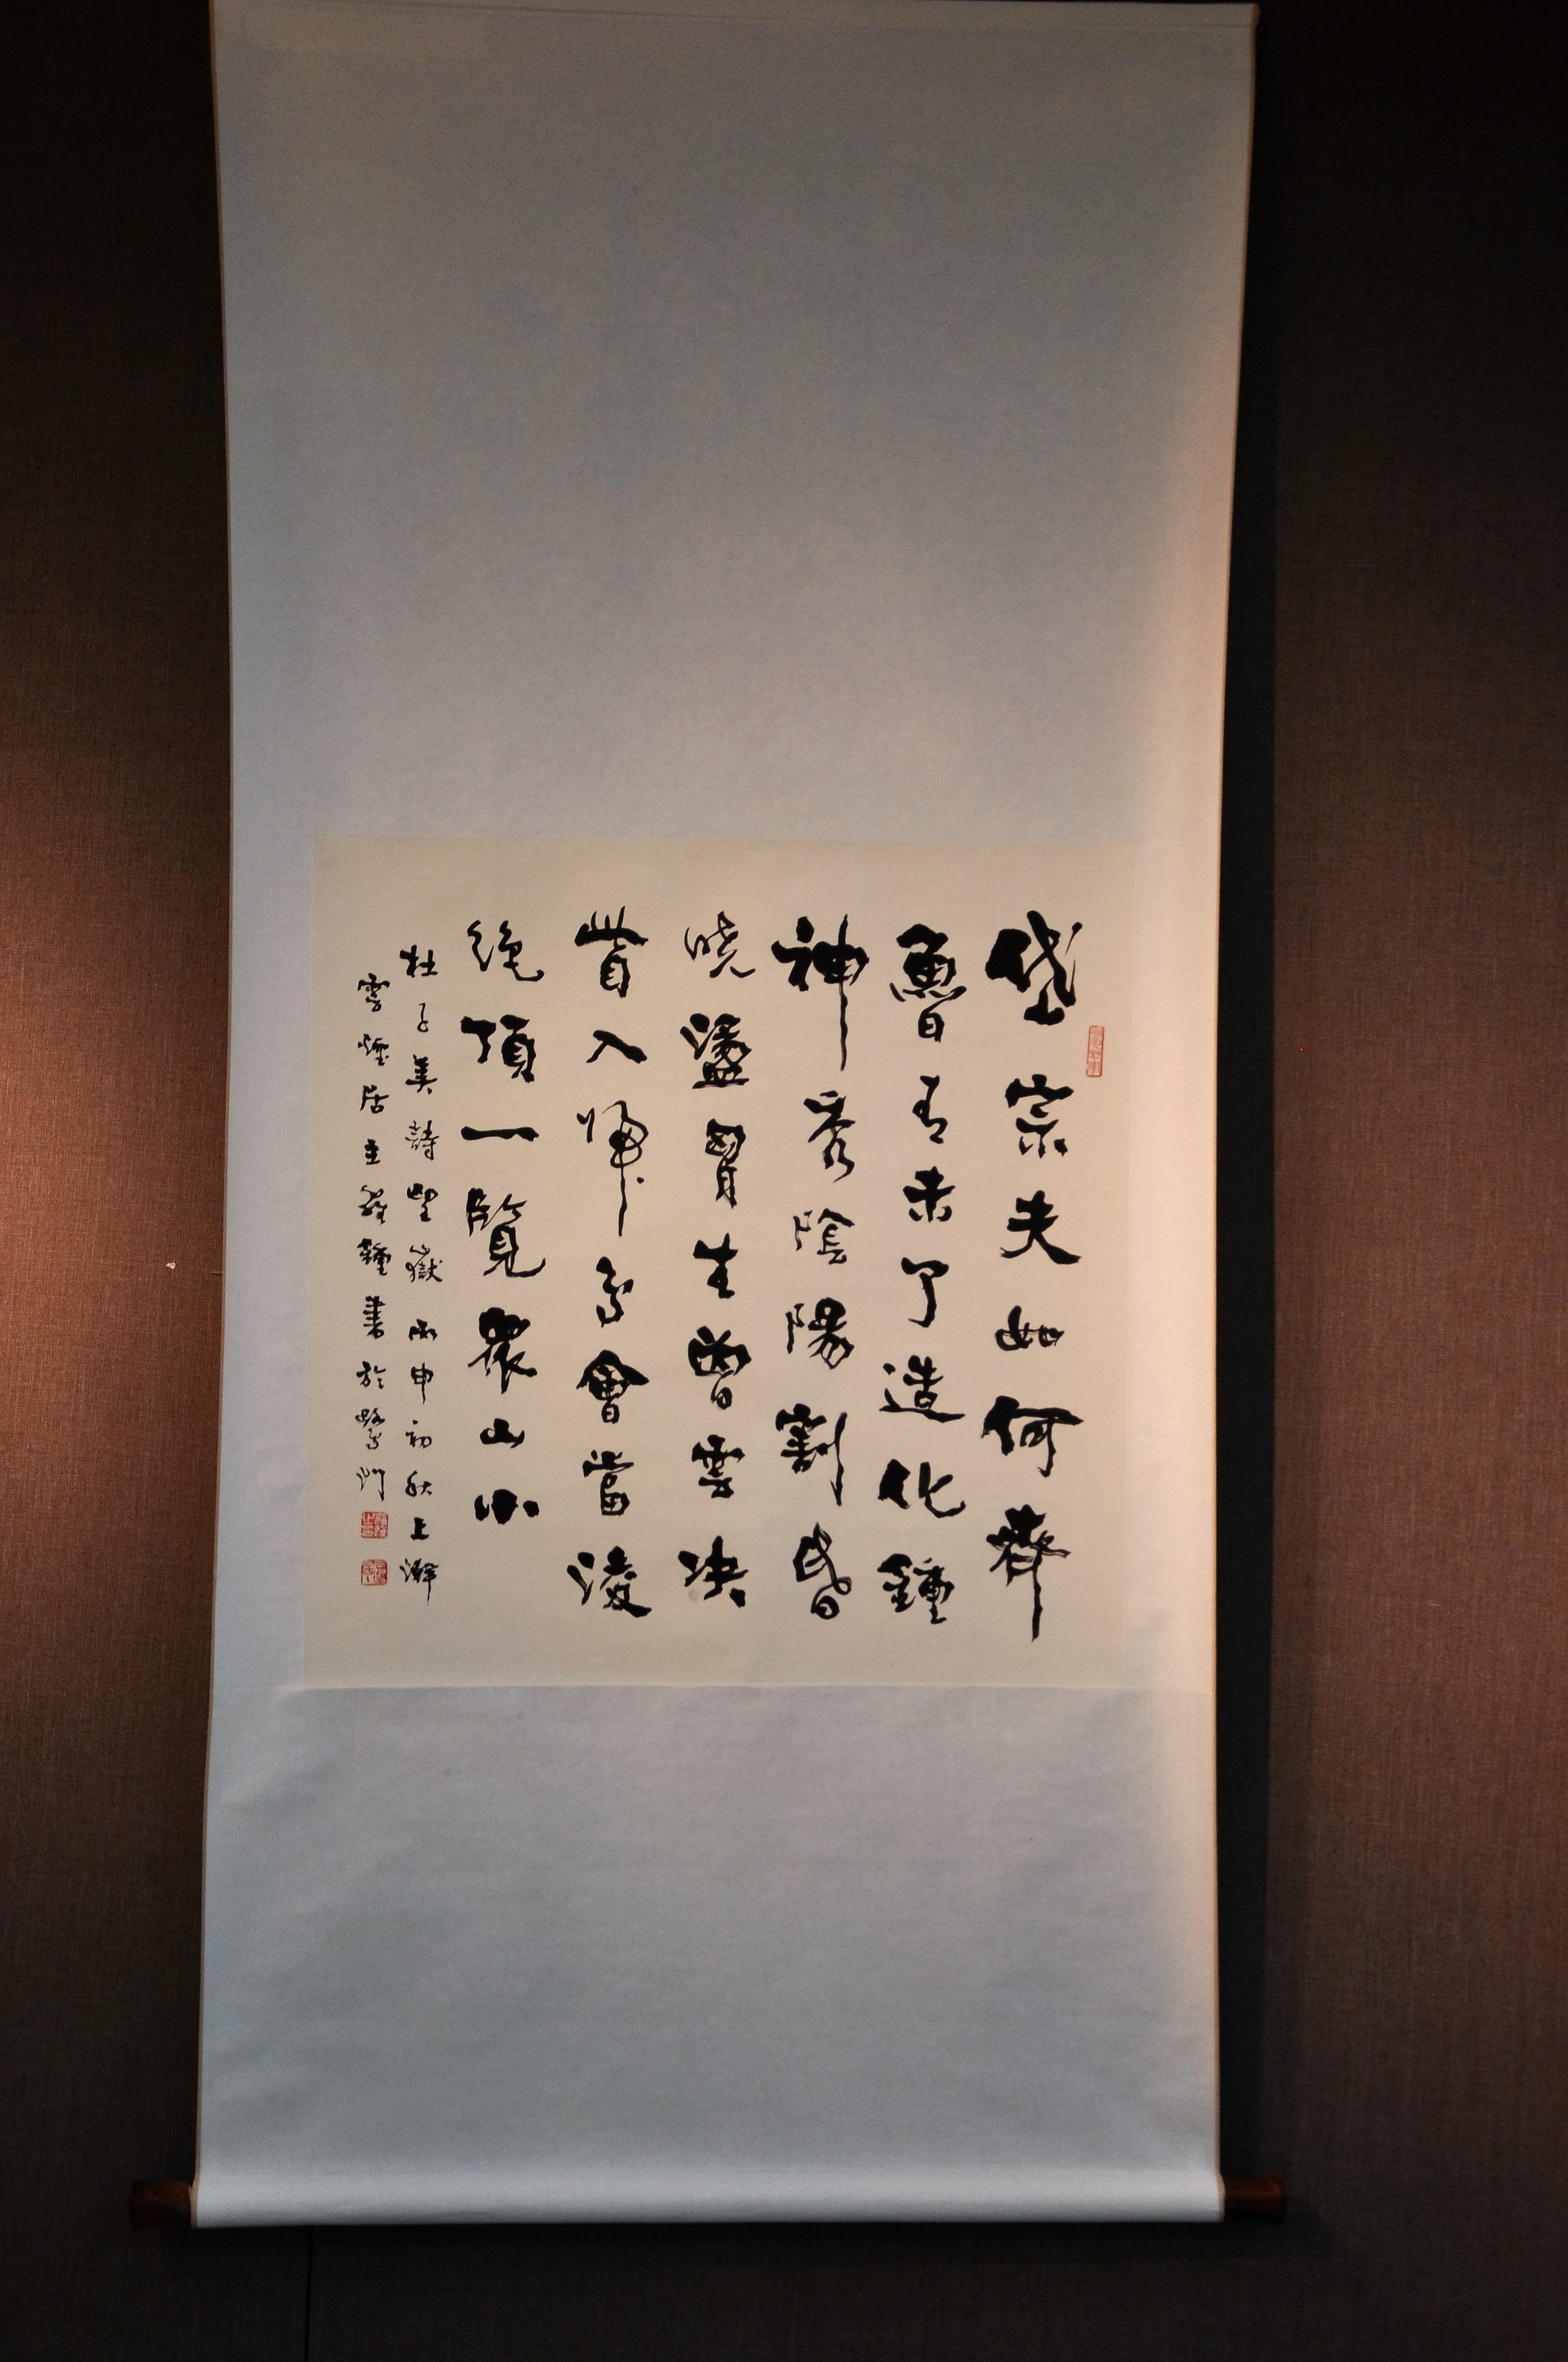 岱宗夫如何齊
魯青未了造化鍾
神秀陰陽割昏
曉盪胷生曾雲決
眥入歸鳥會當淩
絕頂一覽衆山小
杜子美詩望嶽丙申初秋上澣
雲煙居主鍾書於鷺門